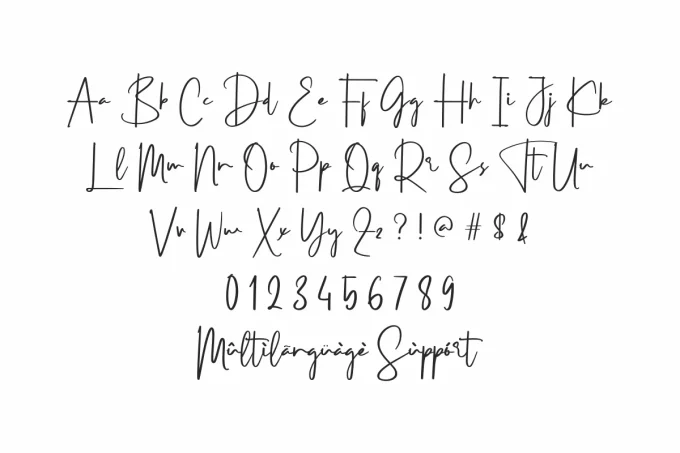 Aa Bb Cc Dd Ee Ff Gg Hh Ii Jj Kk
Ll Mm Nn Oo Pp Qq Rr Ss Tt Uu
Vv Ww Xx Yy Zz ? ! @ # $ &
0 1 2 3 4 5 6 7 8 9
Mûltìlãngüàgè Sùppórt